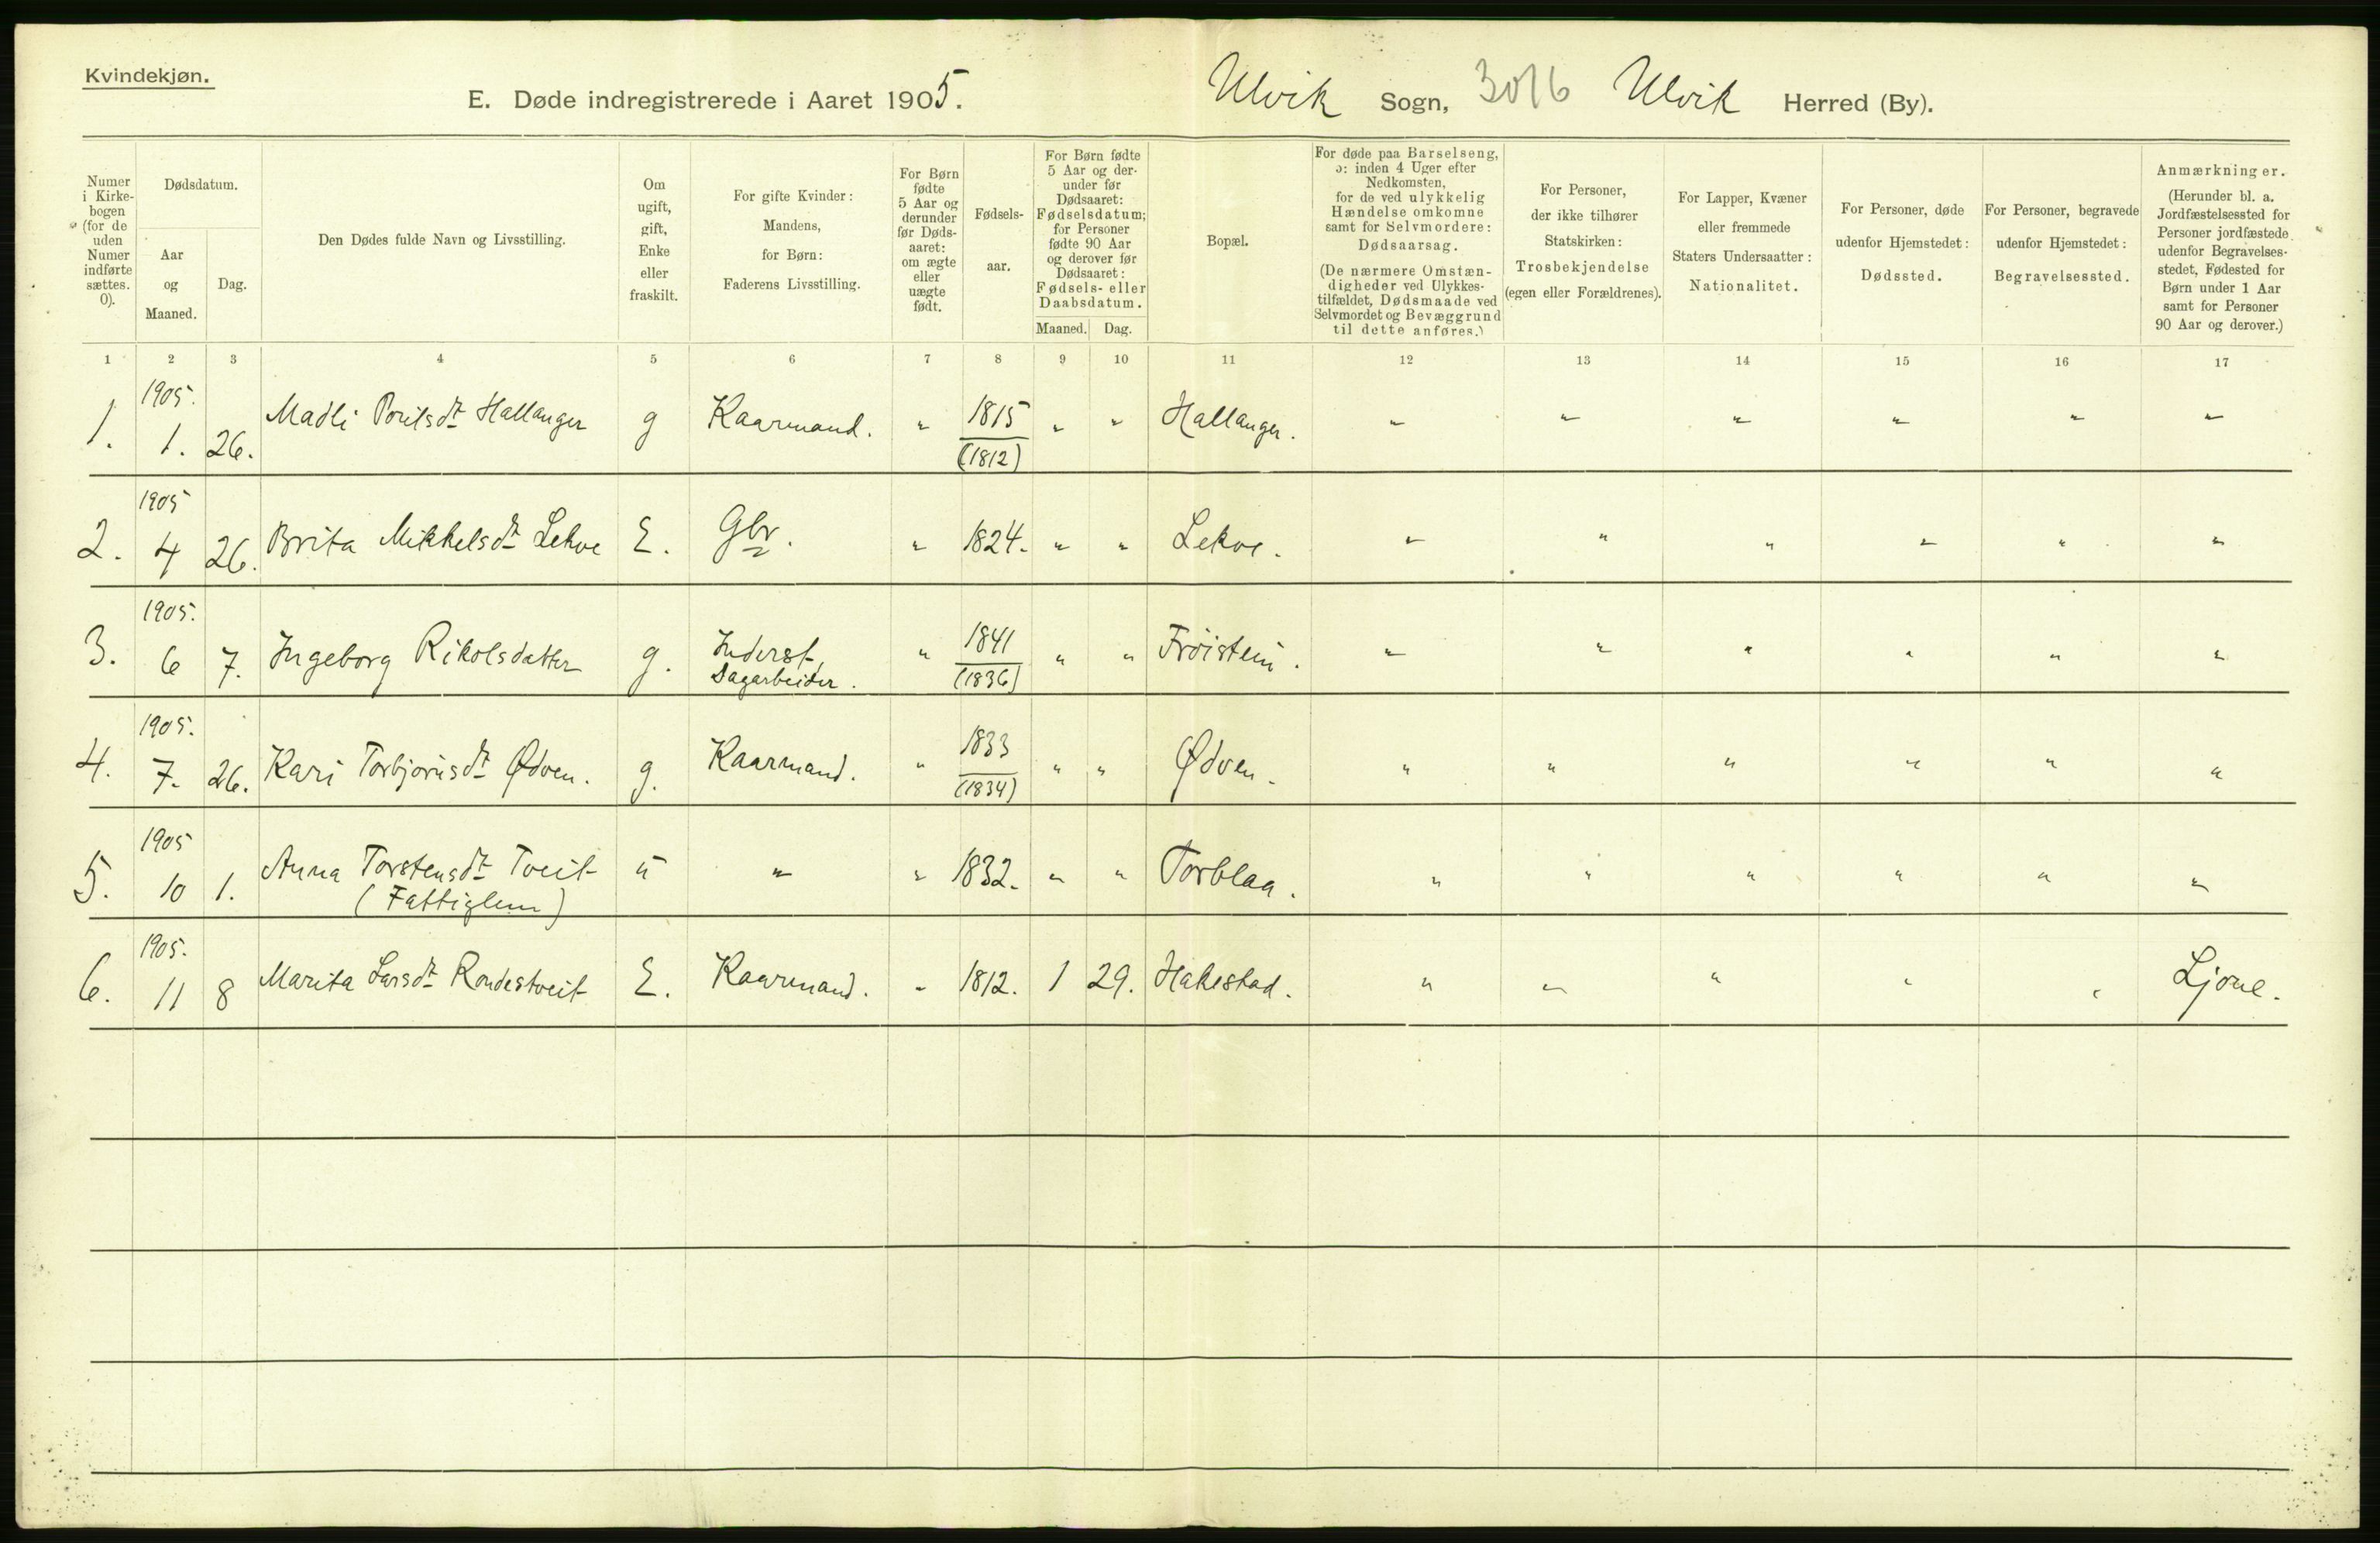 Kvindekjøn.
E. Døde indregistrerede i Aaret 1905.
Ulvik Sogn, 3016 Ulvik Herred (By).
Numer i Kirke-bogen (for de uden Numer indførte sættes. 0).
Dødsdatum.
Aar og Maaned.
Dag.
Den Dødes fulde Navn og Livsstilling.
Om ugift, gift, Enke eller fraskilt.
For gifte Kvinder: Mandens, for Børn: Faderens Livsstilling.
For Børn fødte 5 Aar og derunder før Døds-aaret: om ægte eller uægte født.
Fødsels-aar.
For Børn fødte 5 Aar og der-under før Dødsaaret: Fødselsdatum; for Personer fødte 90 Aar og derover før Dødsaaret: Fødsels- eller Daabsdatum.
Maaned. Dag.
Bopæl.
For døde paa Barselseng, ɔ: inden 4 Uger efter Nedkomsten, for de ved ulykkelig Hændelse omkomne samt for Selvmordere: Dødsaarsag.
(De nærmere Omstæn-digheder ved Ulykkes-tilfældet, Dødsmaade ved Selvmordet og Bevæggrund til dette anføres.)
For Personer, der ikke tilhører Statskirken: Trosbekjendelse (egen eller Forældrenes).
For Lapper, Kvæner eller fremmede Staters Undersaatter: Nationalitet.
For Personer, døde udenfor Hjemstedet: Dødssted.
For Personer, begravede udenfor Hjemstedet: Begravelsessted.
Anmærkninger.
(Herunder bl. a. Jordfæstelsessted for Personer jordfæstede udenfor Begravelses-stedet, Fødested for Børn under 1 Aar samt for Personer 90 Aar og derover.)
1 2 3 4 5 6 7 8 9 10 11 12 13 14 15 16 17
1. 1905. 1. 26. Madli Hallanger g Kaarmand. " 1815 (1812) " " Hallanger. " " " " " "
2. 1905 4 26. Brita Mikkelsdt Lekve E. Gbr. " 1824. " " Lekve. " " " " " "
3. 1905. 6 7. Ingeborg Rikolsdatter g. Inderst, Dagarbeider. " 1841 (1836) " " Frøistein. " " " " " "
4. 1905. 7. 26. Kari Torbjørnsdt Ødven. g. Kaarmand. " 1833 (1834) " " Ødven. " " " " " "
5. 1905 10 1. Anna Torstensdt Tveit (Fattiglem) u " " 1832. " " Torblaa. " " " " " "
6. 1905. 11 8 Marita Larsdt Rondestveit E. Kaarmand. " 1812. 1 29. Hakestad. " " " " " Ljone.